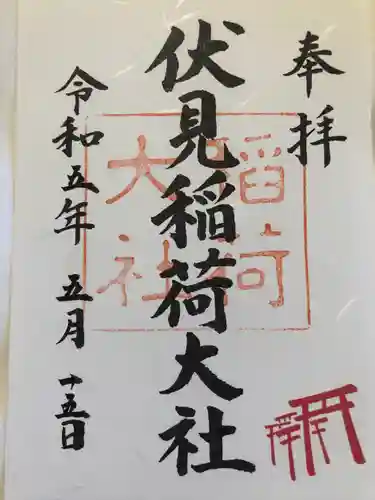 奉拝
伏見稲荷大社
稲荷
大社
令和五年 五月 十五日